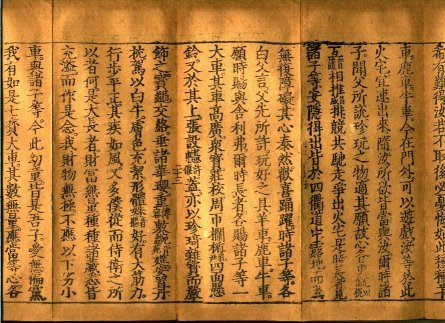 車鹿車牛車今在門外可以遊戲汝等於此
火宅宜速出來隨汝所欲皆當與汝爾時諸
子聞父所說珍玩之物適其願故心各勇銳
互相推排競共馳走爭出火宅是時長者見
諸子等安隱得出皆於四衢道中露地而坐
無復障礙其心泰然歡喜踊躍時諸子等各
白父言父先所許玩好之具羊車鹿車牛車
願時賜與舍利弗爾時長者各賜諸子等一
大車其車高廣衆寶莊校周帀欄楯四面懸
鈴又於其上張設幰蓋亦以珍奇雜寶而嚴
飾之寶繩交絡垂諸華瓔重敷綩綖安置丹
枕駕以白牛膚色充潔形體姝好有大筋力
行步平正其疾如風又多僕從而侍衛之所
以者何是大長者財富無量種種諸藏悉皆
充溢而作是念我財物無極不應以下劣小
車與諸子等今此幼童皆是吾子愛無偏黨
我有如是七寶大車其數無量應當等心各